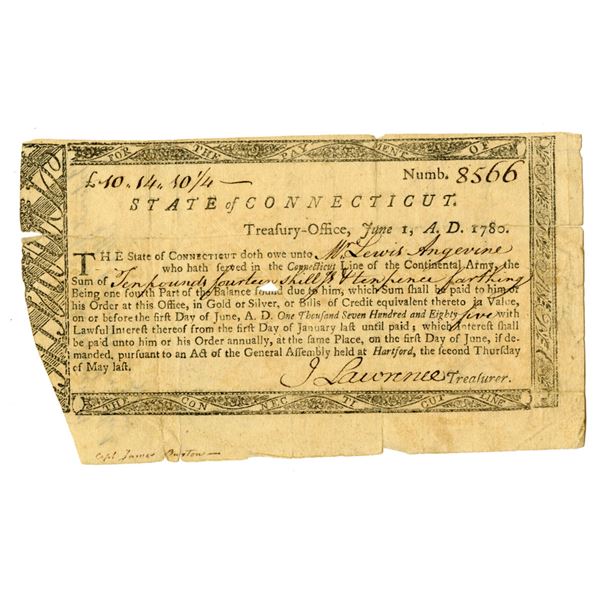 FOR THE PAYMENT OF
£10.14.10¼ Numb. 8566
STATE of CONNECTICUT.
Treasury-Office, June 1, A. D. 1780.
THE State of CONNECTICUT doth owe unto Mr Lewis Angevine
who hath served in the Connecticut Line of the Continental Army, the
Sum of Ten pounds fourteen shills & ten pence farthing
Being one fourth Part of the Balance found due to him, which Sum shall be paid to him or
his Order at this Office, in Gold or Silver, or Bills of Credit equivalent thereto in Value,
on or before the first Day of June, A. D. One Thousand Seven Hundred and Eighty-five with
Lawful Interest thereof from the first Day of January last until paid; which Interest shall
be paid unto him or his Order annually, at the same Place, on the first Day of June, if de-
manded, pursuant to an Act of the General Assembly held at Hartford, the second Thursday
of May last.
J Lawrence Treasurer.
THE CONNECTICUT LINE
Capt James